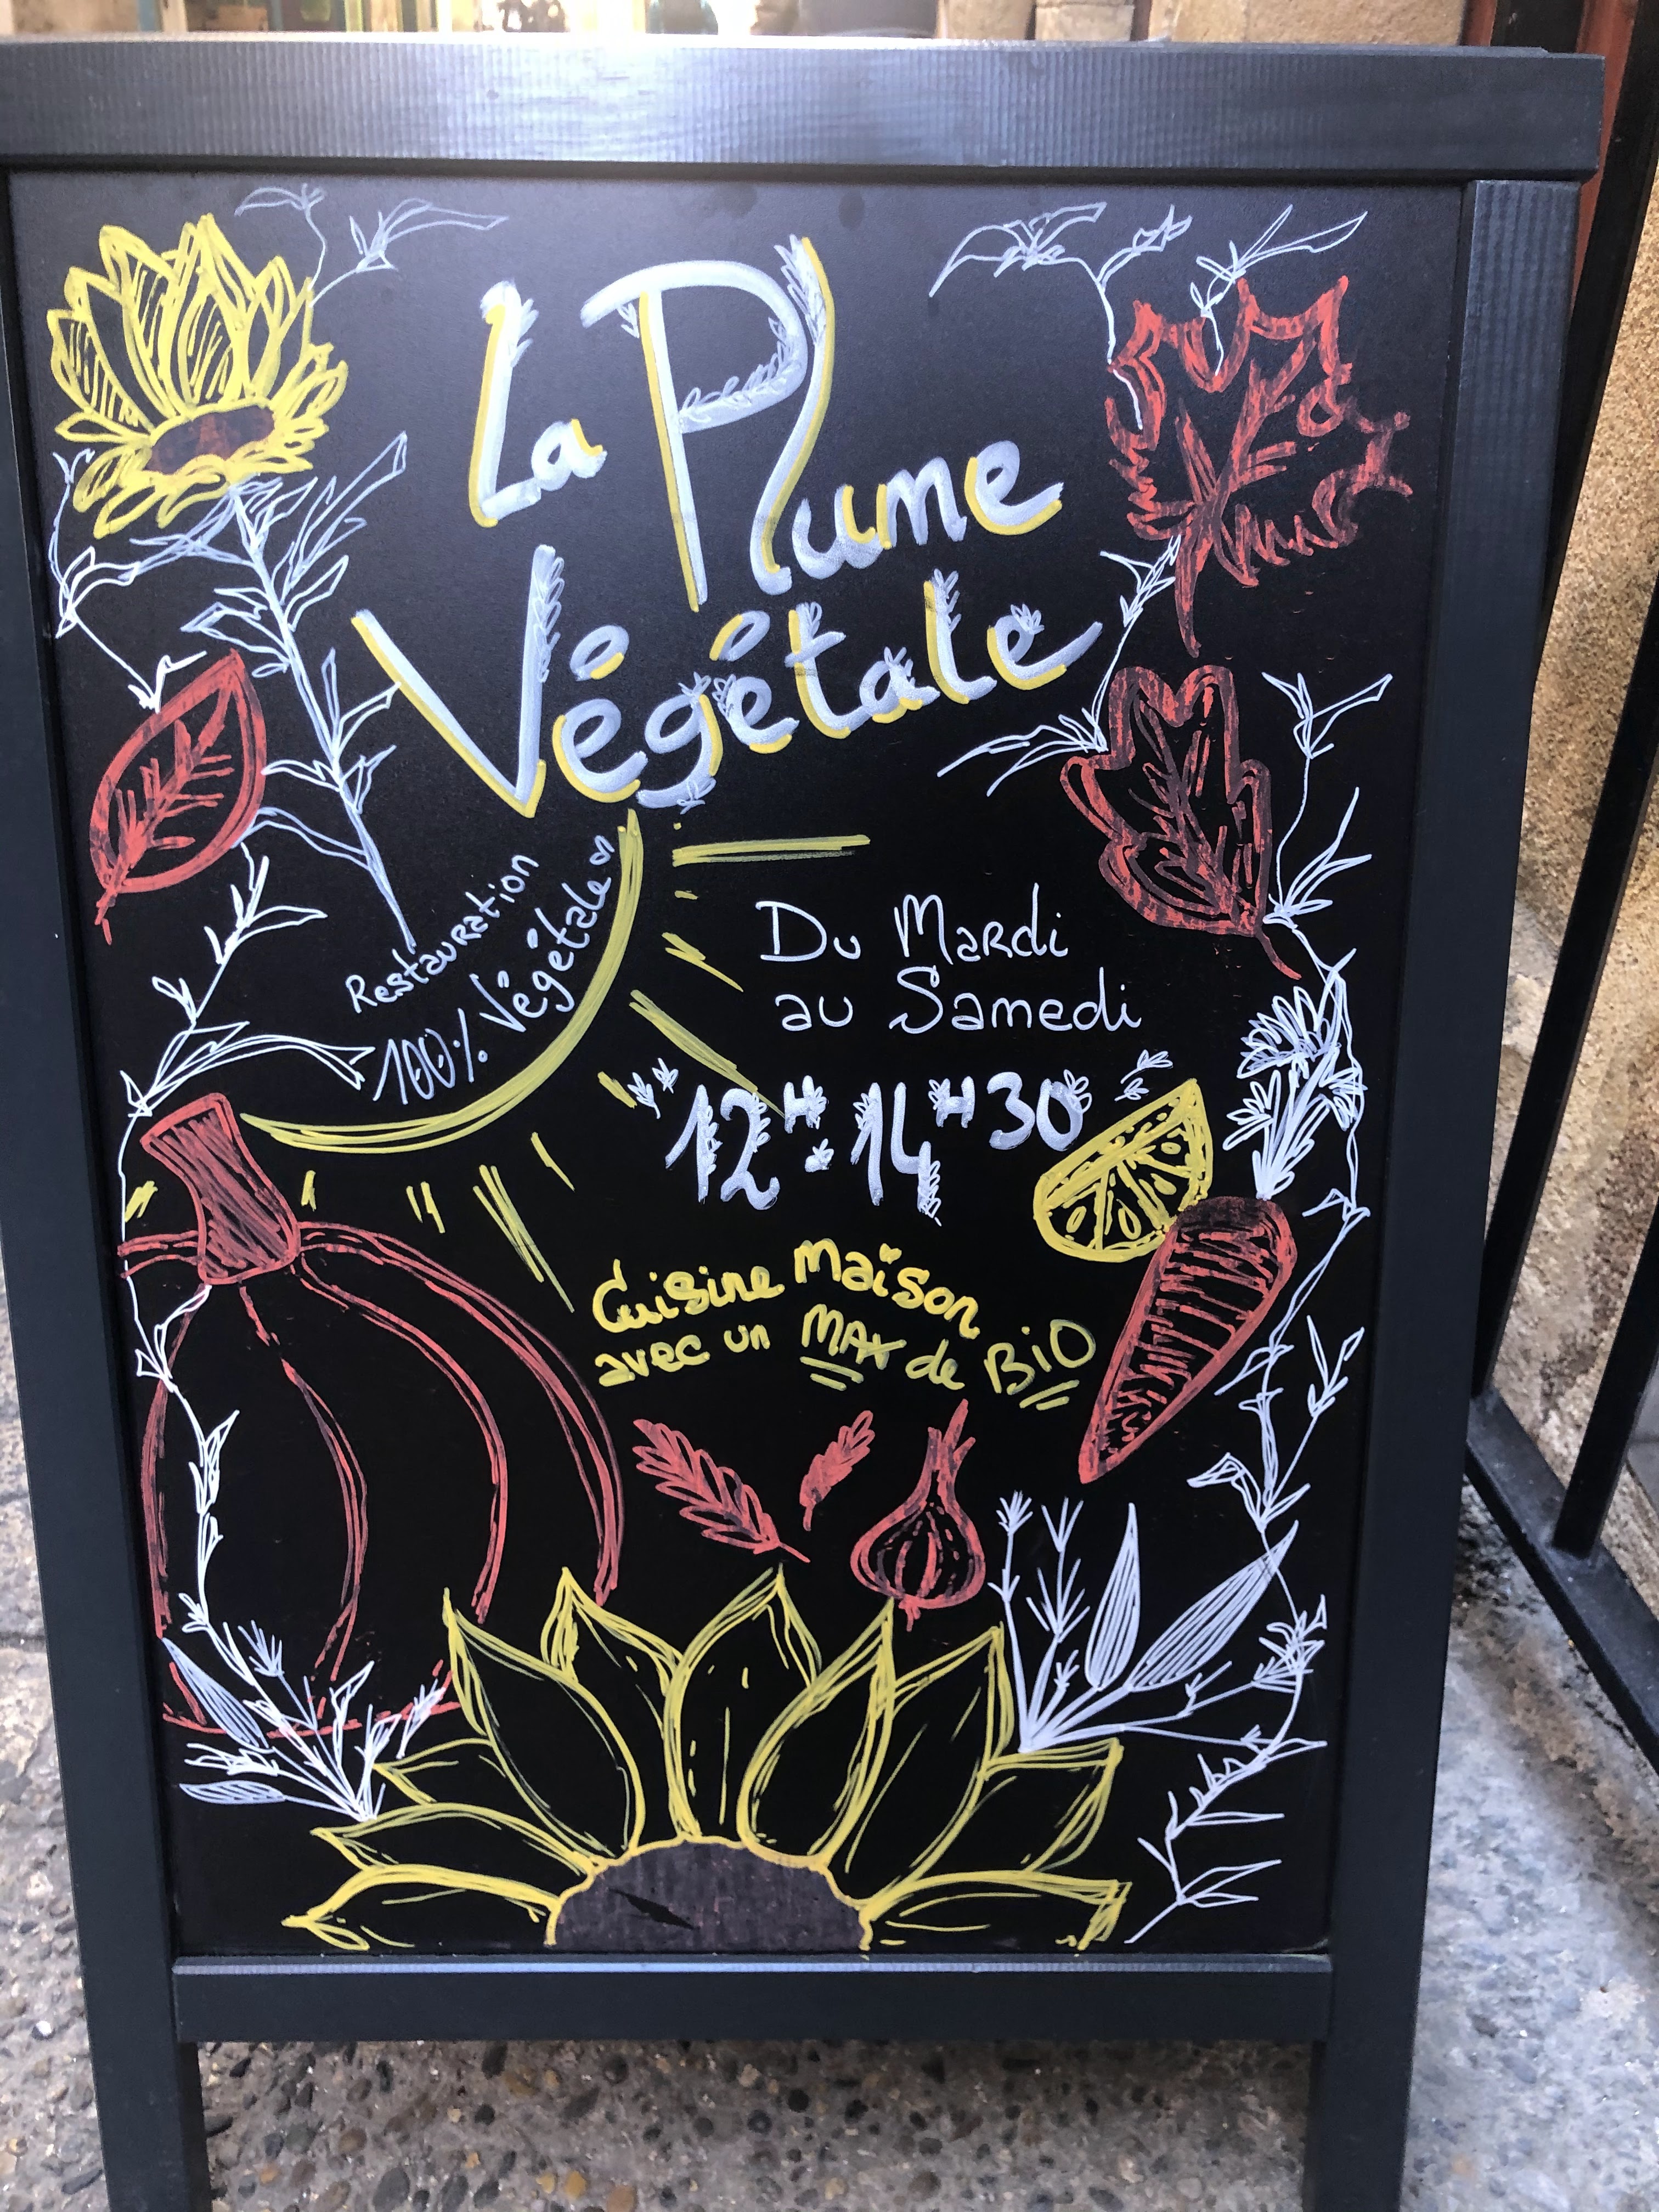 La Plume
Végétale
Restauration
100% Végétale
Du Mardi
au Samedi
12H-14H30
Cuisine Maison
avec un MAX de BiO